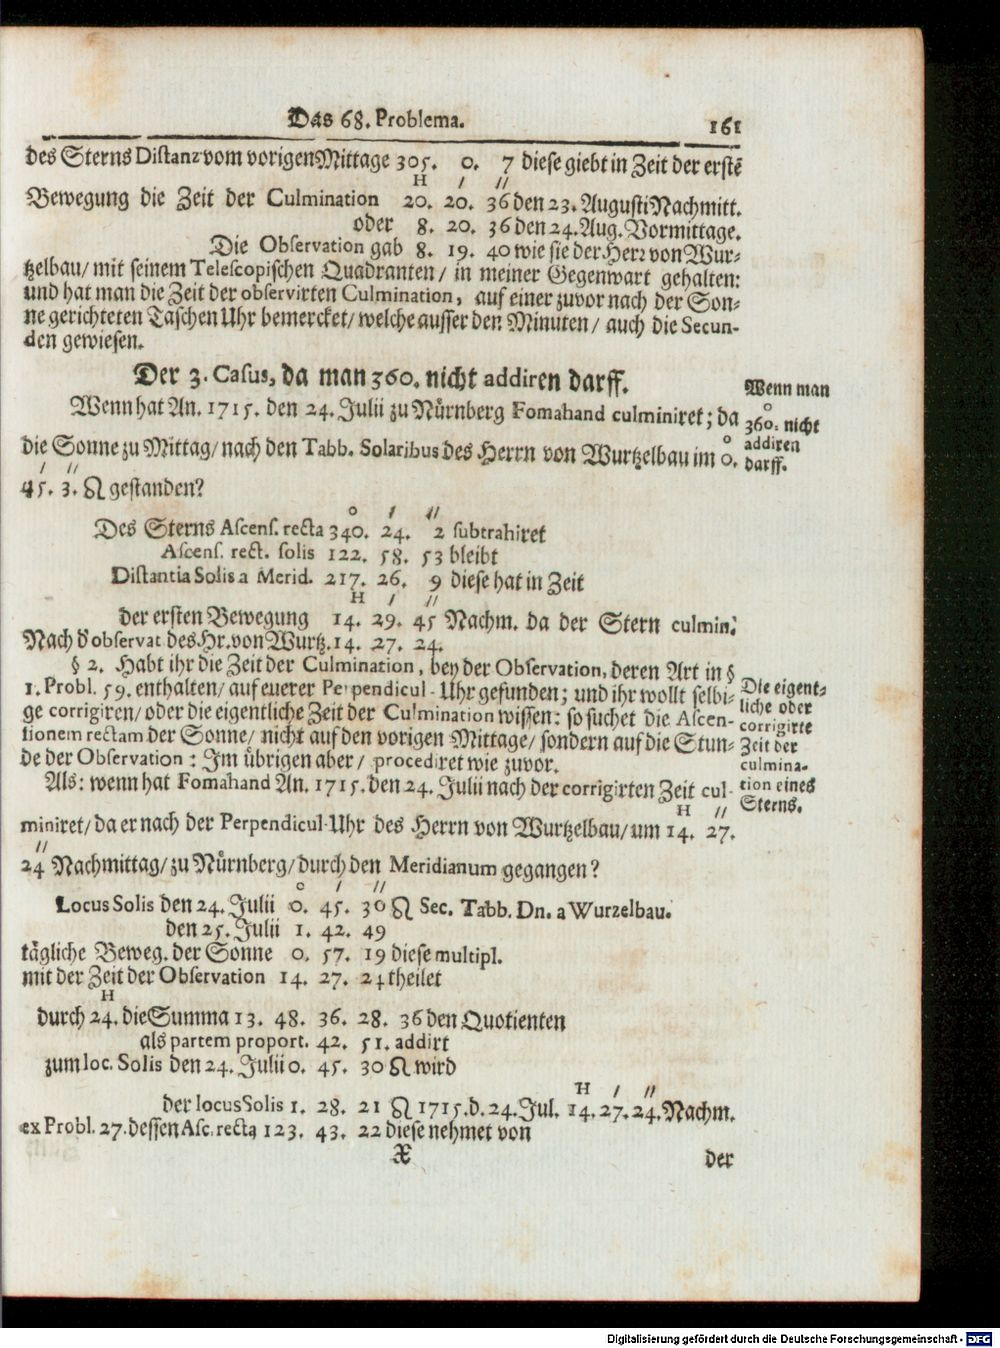 Das 68. Problema. 161
des Sterns Distanz vom vorigen Mittage 305. 0. 7 diese giebt in Zeit der erstē
H ′ ″
Bewegung die Zeit der Culmination 20. 20. 36 den 23. Augusti Nachmitt.
oder 8. 20. 36 den 24. Aug. Vormittage.
Die Observation gab 8. 19. 40 wie sie der Herr von Wur-
tzelbau/ mit seinem Telescopischen Quadranten/ in meiner Gegenwart gehalten:
und hat man die Zeit der observirten Culmination, auf einer zuvor nach der Son-
ne gerichteten Taschen Uhr bemercket/ welche ausser den Minuten/ auch die Secun-
den gewiesen.
Der 3. Casus, da man 360. nicht addiren darff.
Wenn man
°
360. nicht
addiren
darff.
Wenn hat An. 1715. den 24. Julii zu Nürnberg Fomahand culminiret; da
°
die Sonne zu Mittag/ nach den Tabb. Solaribus des Herrn von Wurtzelbau im 0.
′ ″
45. 3. ♌ gestanden?
° ′ ″
Des Sterns Ascens. recta 340. 24. 2 subtrahiret
Ascens. rect. solis 122. 58. 53 bleibt
Distantia Solis a Merid. 217. 26. 9 diese hat in Zeit
H ′ ″
der ersten Bewegung 14. 29. 45 Nachm. da der Stern culmin.
Nach d' observat des Hr. von Wurtz. 14. 27. 24.
§ 2. Habt ihr die Zeit der Culmination, bey der Observation, deren Art in §
1. Probl. 59. enthalten/ auf euerer Perpendicul-Uhr gefunden; und ihr wollt selbi-
ge corrigiren/ oder die eigentliche Zeit der Culmination wissen: so suchet die Ascen-
sionem rectam der Sonne/ nicht auf den vorigen Mittage/ sondern auf die Stun-
de der Observation: Im übrigen aber/ procediret wie zuvor.
Die eigent-
liche oder
corrigirte
Zeit der
culmina-
tion eines
Sterns.
Als: wenn hat Fomahand An. 1715. den 24. Julii nach der corrigirten Zeit cul-
H ″
miniret/ da er nach der Perpendicul-Uhr des Herrn von Wurtzelbau/ um 14. 27.
″
24 Nachmittag/ zu Nürnberg/ durch den Meridianum gegangen?
° ′ ″
Locus Solis den 24. Julii 0. 45. 30 ♌ Sec. Tabb. Dn. a Wurzelbau.
den 25. Julii 1. 42. 49
tägliche Beweg. der Sonne 0. 57. 19 diese multipl.
mit der Zeit der Observation 14. 27. 24 theilet
H
durch 24. die Summa 13. 48. 36. 28. 36 den Quotienten
als partem proport. 42. 51. addirt
zum loc. Solis den 24. Julii 0. 45. 30 ♌ wird
H ′ ″
der locus Solis 1. 28. 21 ♌ 1715. d. 24. Jul. 14. 27. 24. Nachm.
ex Probl. 27. dessen Asc. recta 123. 43. 22 diese nehmet von
X der
Digitalisierung gefördert durch die Deutsche Forschungsgemeinschaft - DFG